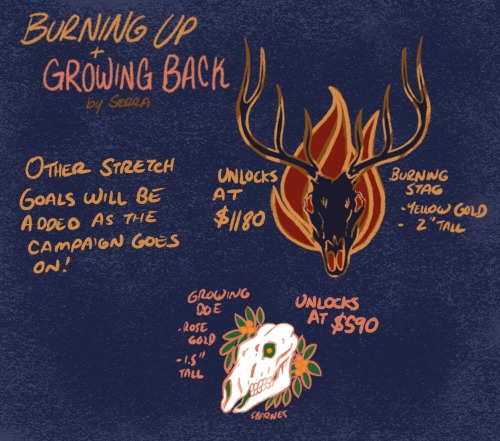 BURNING UP
+
GROWING BACK
by SERRA
OTHER STRETCH
GOALS WILL BE
ADDED AS THE
CAMPAIGN GOES
ON!
UNLOCKS
AT
$1180
BURNING
STAG
-YELLOW GOLD
- 2" TALL
GROWING
DOE
-ROSE
GOLD
-1.5"
TALL
UNLOCKS
AT $590